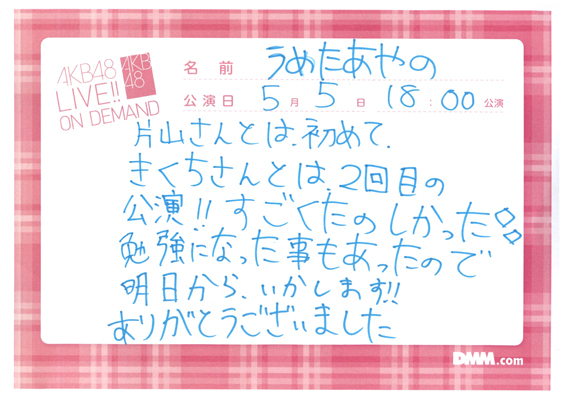 AKB48
LIVE!!
ON DEMAND
AKB
48
名前 うめたあやの
公演日 5月5日 18:00公演
片山さんとは、初めて、
きくちさんとは、2回目の
公演!!すごくたのしかった◇◇
勉強になった事もあったので
明日から、いかします!!
ありがとうございました
DMM.com